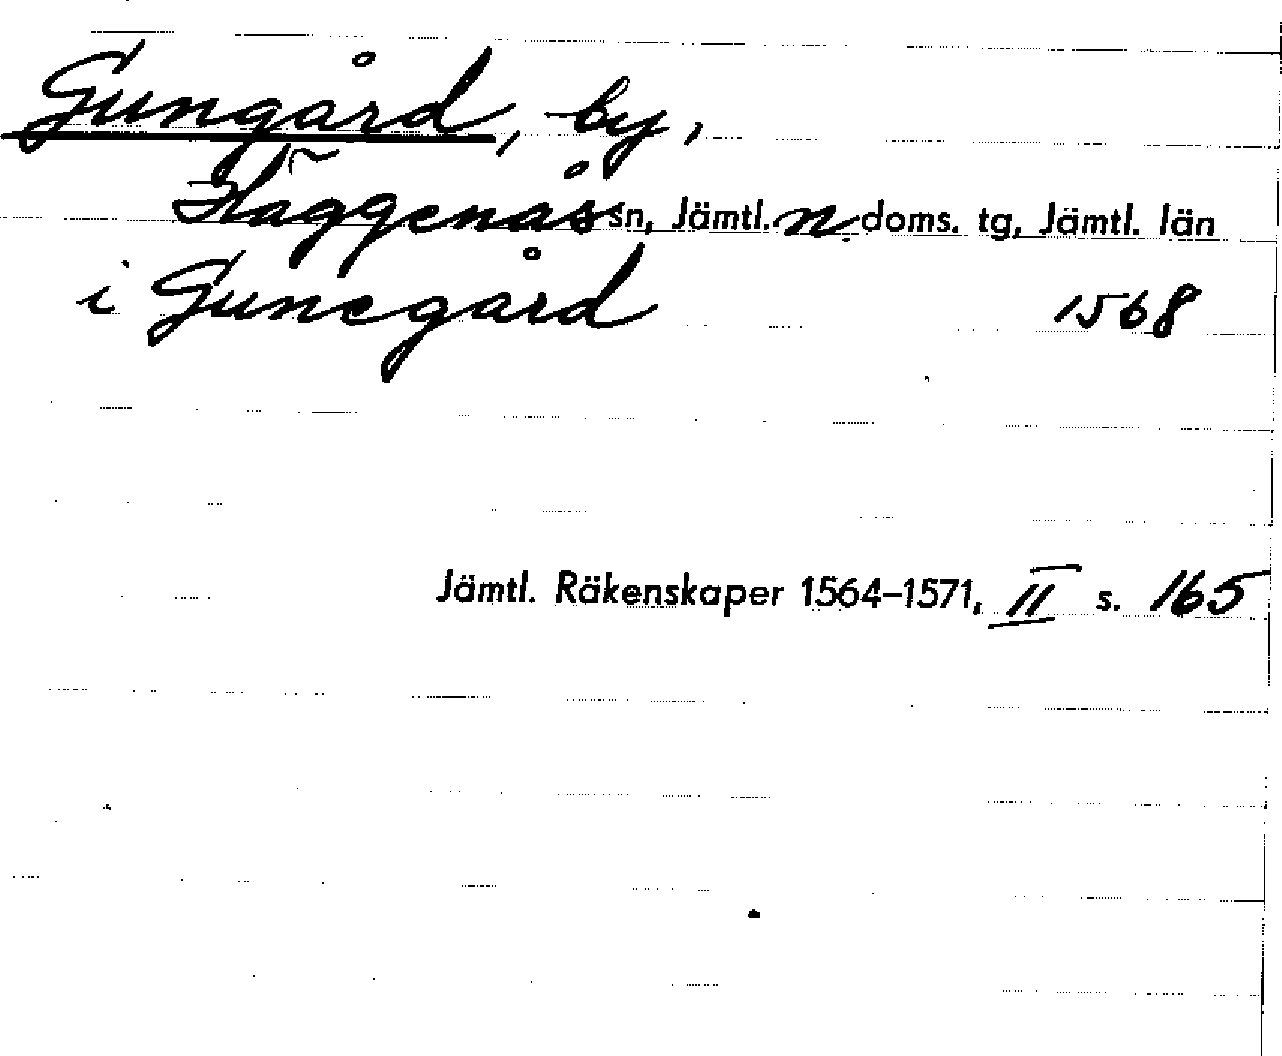 Gungård, by,
Häggenås sn, Jämtl. n. doms. tg, Jämtl. län
i Gunegård 1568
Jämtl. Räkenskaper 1564–1571, II s. 165